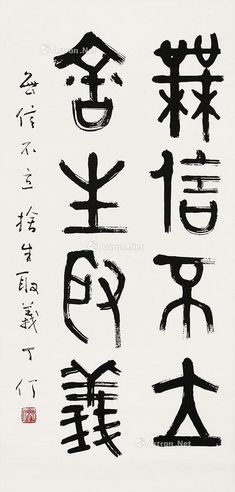 無信不立
舍生取義
無信不立 捨生取義 丁仃
Artron.Net